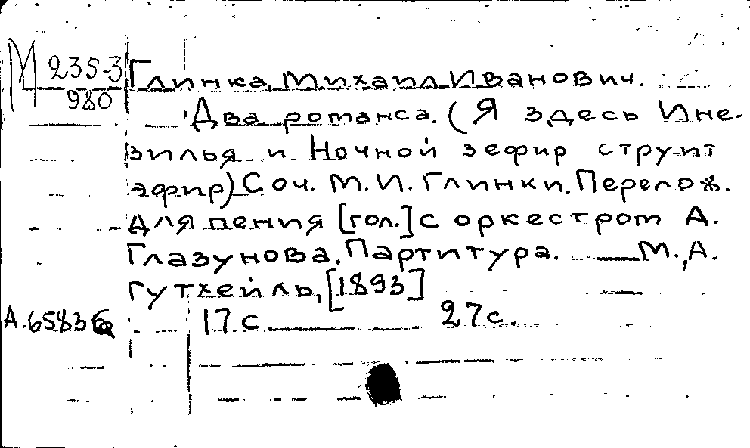 М 235-3
980
Глинка, Михаил Иванович.
Два романса. (Я здесь Ине-
зилья и Ночной зефир струит
эфир) Соч. М.И. Глинки. Перелож.
для пения [гол.] с оркестром А.
Глазунова. Партитура. М., А.
Гутхейль, [1893]
17 с. 27 с.